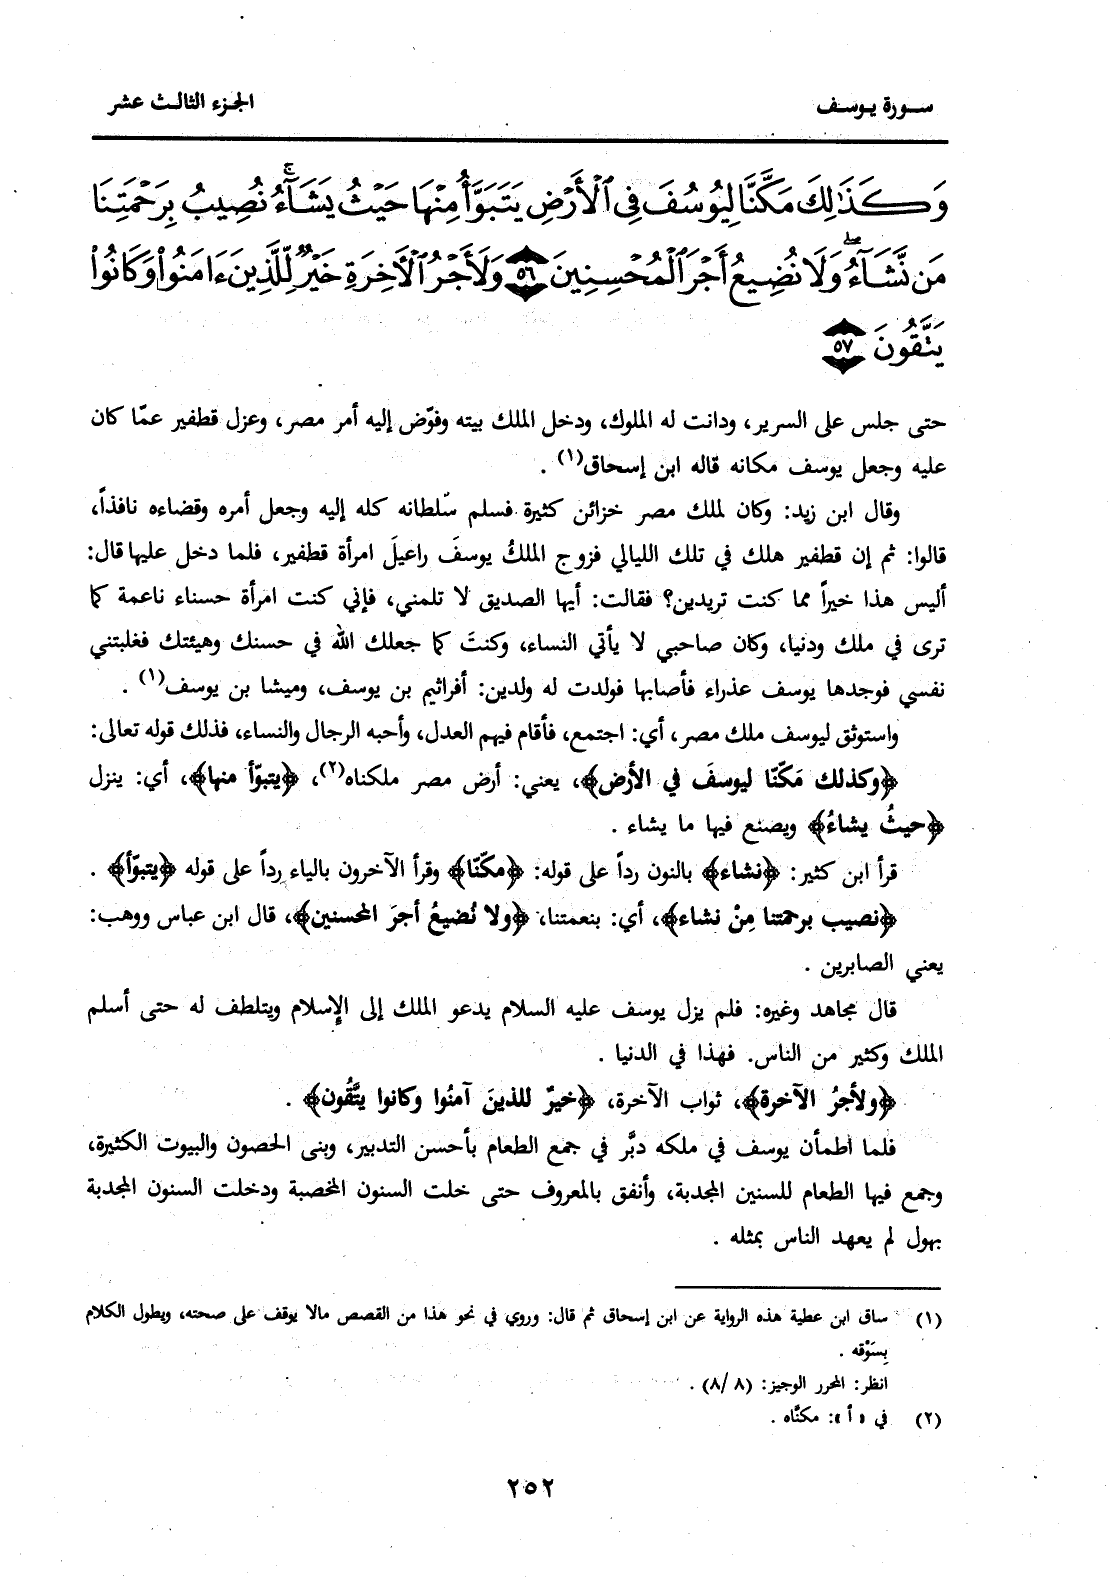 سورة يوسف
الجزء الثالث عشر
وَكَذَٰلِكَ مَكَّنَّا لِيُوسُفَ فِي ٱلْأَرْضِ يَتَبَوَّأُ مِنْهَا حَيْثُ يَشَآءُ ۚ نُصِيبُ بِرَحْمَتِنَا
مَن نَّشَآءُ ۖ وَلَا نُضِيعُ أَجْرَ ٱلْمُحْسِنِينَ ٥٦ وَلَأَجْرُ ٱلْأَخِرَةِ خَيْرٌ لِّلَّذِينَ ءَامَنُوا۟ وَكَانُوا۟
يَتَّقُونَ ٥٧
حتى جلس على السرير، ودانت له الملوك، ودخل الملك بيته وفوّض إليه أمر مصر، وعزل قطفير عمّا كان
عليه وجعل يوسف مكانه قاله ابن إسحاق(١) .
وقال ابن زيد: وكان لملك مصر خزائن كثيرة فسلم سّلطانه كله إليه وجعل أمره وقضاءه نافذاً،
قالوا: ثم إن قطفير هلك في تلك الليالي فزوج الملكُ يوسفَ راعيلَ امرأة قطفير، فلما دخل عليها قال:
أليس هذا خيراً مما كنت تريدين؟ فقالت: أيها الصديق لا تلمني، فإني كنت امرأة حسناء ناعمة كما
ترى في ملك ودنيا، وكان صاحبي لا يأتي النساء، وكنتَ كما جعلك الله في حسنك وهيئتك فغلبتني
نفسي فوجدها يوسف عذراء فأصابها فولدت له ولدين: أفراثيم بن يوسف، وميشا بن يوسف(١) .
واستوثق ليوسف ملك مصر، أي: اجتمع، فأقام فيهم العدل، وأحبه الرجال والنساء، فذلك قوله تعالى:
﴿وكذلك مَكّنّا ليوسفَ في الأرض﴾، يعني: أرض مصر ملكناه(٢)، ﴿يتبوّأ منها﴾، أي: ينزل
﴿حيثُ يشاءُ﴾ ويصنع فيها ما يشاء .
قرأ ابن كثير: ﴿نشاء﴾ بالنون رداً على قوله: ﴿مكنّا﴾ وقرأ الآخرون بالياء رداً على قوله ﴿يتبوّأ﴾ .
﴿نصيب برحمتنا مِنْ نشاء﴾، أي: بنعمتنا، ﴿ولا نُضيعُ أجرَ المحسنين﴾، قال ابن عباس ووهب:
يعني الصابرين .
قال مجاهد وغيره: فلم يزل يوسف عليه السلام يدعو الملك إلى الإسلام ويتلطف له حتى أسلم
الملك وكثير من الناس. فهذا في الدنيا .
﴿ولأجرُ الآخرة﴾، ثواب الآخرة، ﴿خيرٌ للذينَ آمنُوا وكانوا يتَّقُون﴾ .
فلما اطمأن يوسف في ملكه دبَّر في جمع الطعام بأحسن التدبير، وبنى الحصون والبيوت الكثيرة،
وجمع فيها الطعام للسنين المجدبة، وأنفق بالمعروف حتى خلت السنون المخصبة ودخلت السنون المجدبة
بهول لم يعهد الناس بمثله .
(١) ساق ابن عطية هذه الرواية عن ابن إسحاق ثم قال: وروي في نحو هذا من القصص مالا يوقف على صحته، ويطول الكلام
بِسَوْقه .
انظر: المحرر الوجيز: (٨/٨) .
(٢) في «أ»: مكنَّاه .
٢٥٢